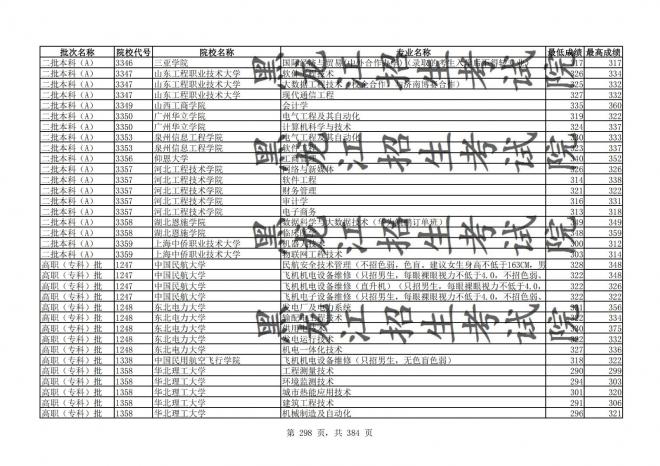 批次名称 院校代号 院校名称 专业名称 最低成绩 最高成绩
二批本科（A） 3346 三亚学院 317 317
二批本科（A） 3347 山东工程职业技术大学 软件工程技术 326 334
二批本科（A） 3347 山东工程职业技术大学 325 332
二批本科（A） 3347 山东工程职业技术大学 现代通信工程 327 332
二批本科（A） 3349 山西工商学院 会计学 335 360
二批本科（A） 3350 广州华立学院 电气工程及其自动化 319 322
二批本科（A） 3350 广州华立学院 计算机科学与技术 324 337
二批本科（A） 3353 泉州信息工程学院 电气工程及其自动化 330 333
二批本科（A） 3353 泉州信息工程学院 软件工程 323 337
二批本科（A） 3356 仰恩大学 工商管理 340 352
二批本科（A） 3357 河北工程技术学院 网络与新媒体 326 326
二批本科（A） 3357 河北工程技术学院 软件工程 314 338
二批本科（A） 3357 河北工程技术学院 财务管理 321 322
二批本科（A） 3357 河北工程技术学院 审计学 316 331
二批本科（A） 3357 河北工程技术学院 电子商务 313 318
二批本科（A） 3358 湖北恩施学院 349 349
二批本科（A） 3358 湖北恩施学院 348 359
二批本科（A） 3359 上海中侨职业技术大学 300 312
二批本科（A） 3359 上海中侨职业技术大学 物联网工程技术 303 314
高职（专科）批 1247 中国民航大学 民航安全技术管理（不招色弱，色盲。建议女生身高不低于163CM，男 328 348
高职（专科）批 1247 中国民航大学 飞机机电设备维修（只招男生，每眼裸眼视力不低于4.0，不招色弱、 322 348
高职（专科）批 1247 中国民航大学 飞机机电设备维修（直升机）（只招男生，每眼裸眼视力不低于4.0， 322 326
高职（专科）批 1247 中国民航大学 飞机电子设备维修（只招男生，每眼裸眼视力不低于4.0，不招色弱、 322 322
高职（专科）批 1248 东北电力大学 发电厂及电力系统 331 356
高职（专科）批 1248 东北电力大学 输配电工程技术 332 334
高职（专科）批 1248 东北电力大学 供用电技术 330 375
高职（专科）批 1248 东北电力大学 发电运行技术 322 332
高职（专科）批 1248 东北电力大学 机电一体化技术 327 336
高职（专科）批 1338 中国民用航空飞行学院 飞机机电设备维修（只招男生，无色盲色弱） 318 322
高职（专科）批 1358 华北理工大学 工程测量技术 290 299
高职（专科）批 1358 华北理工大学 环境监测技术 294 303
高职（专科）批 1358 华北理工大学 城市热能应用技术 301 320
高职（专科）批 1358 华北理工大学 建筑工程技术 291 306
高职（专科）批 1358 华北理工大学 机械制造及自动化 296 321
黑龙江招生考试院
黑龙江招生考试院
黑龙江招生考试院
第 298 页，共 384 页